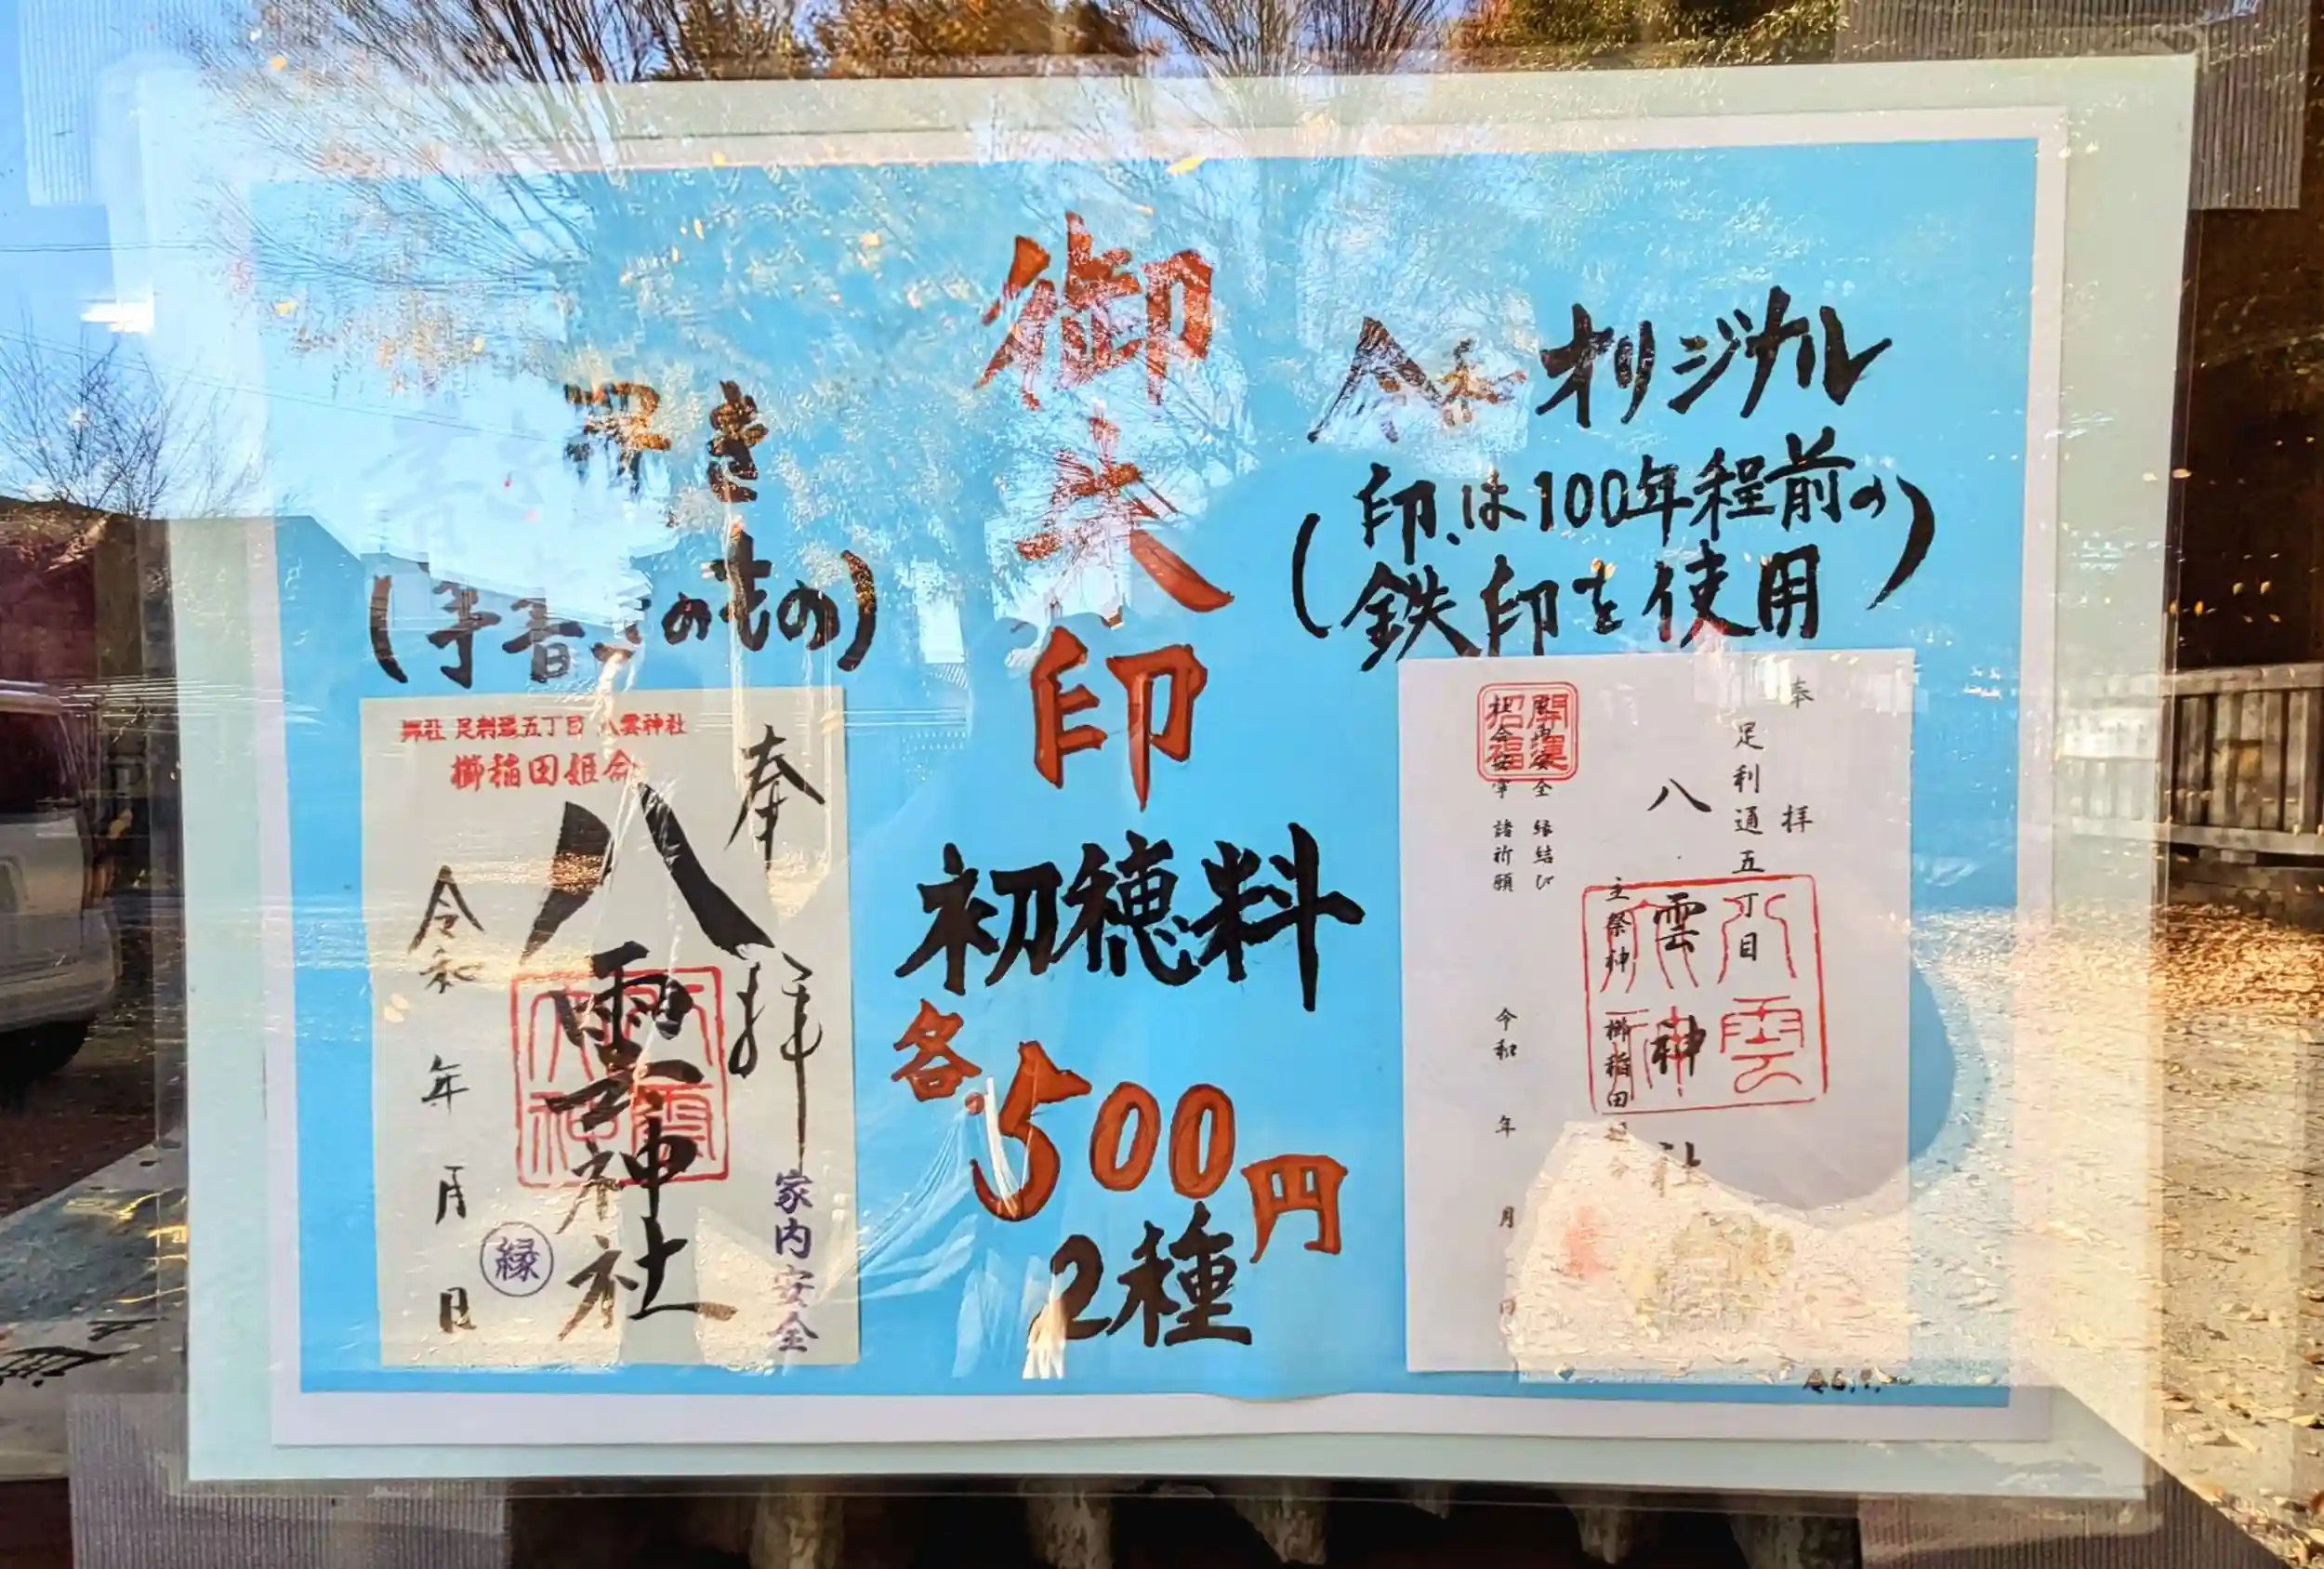 御朱印
初穂料
各500円
2種
令和オリジナル
(印は100年程前の
鉄印を使用)
奉拝
足利通五丁目
八雲神社
主祭神 櫛稲田姫命
家内安全 縁結び
社会安寧 諸祈願
開運
招福
令和 年 月 日
八雲
神
(手書きのもの)
舞社 足利通五丁目 八雲神社
櫛稲田姫命
奉拝
八雲神社
令和 年 月 日
縁
家内安全